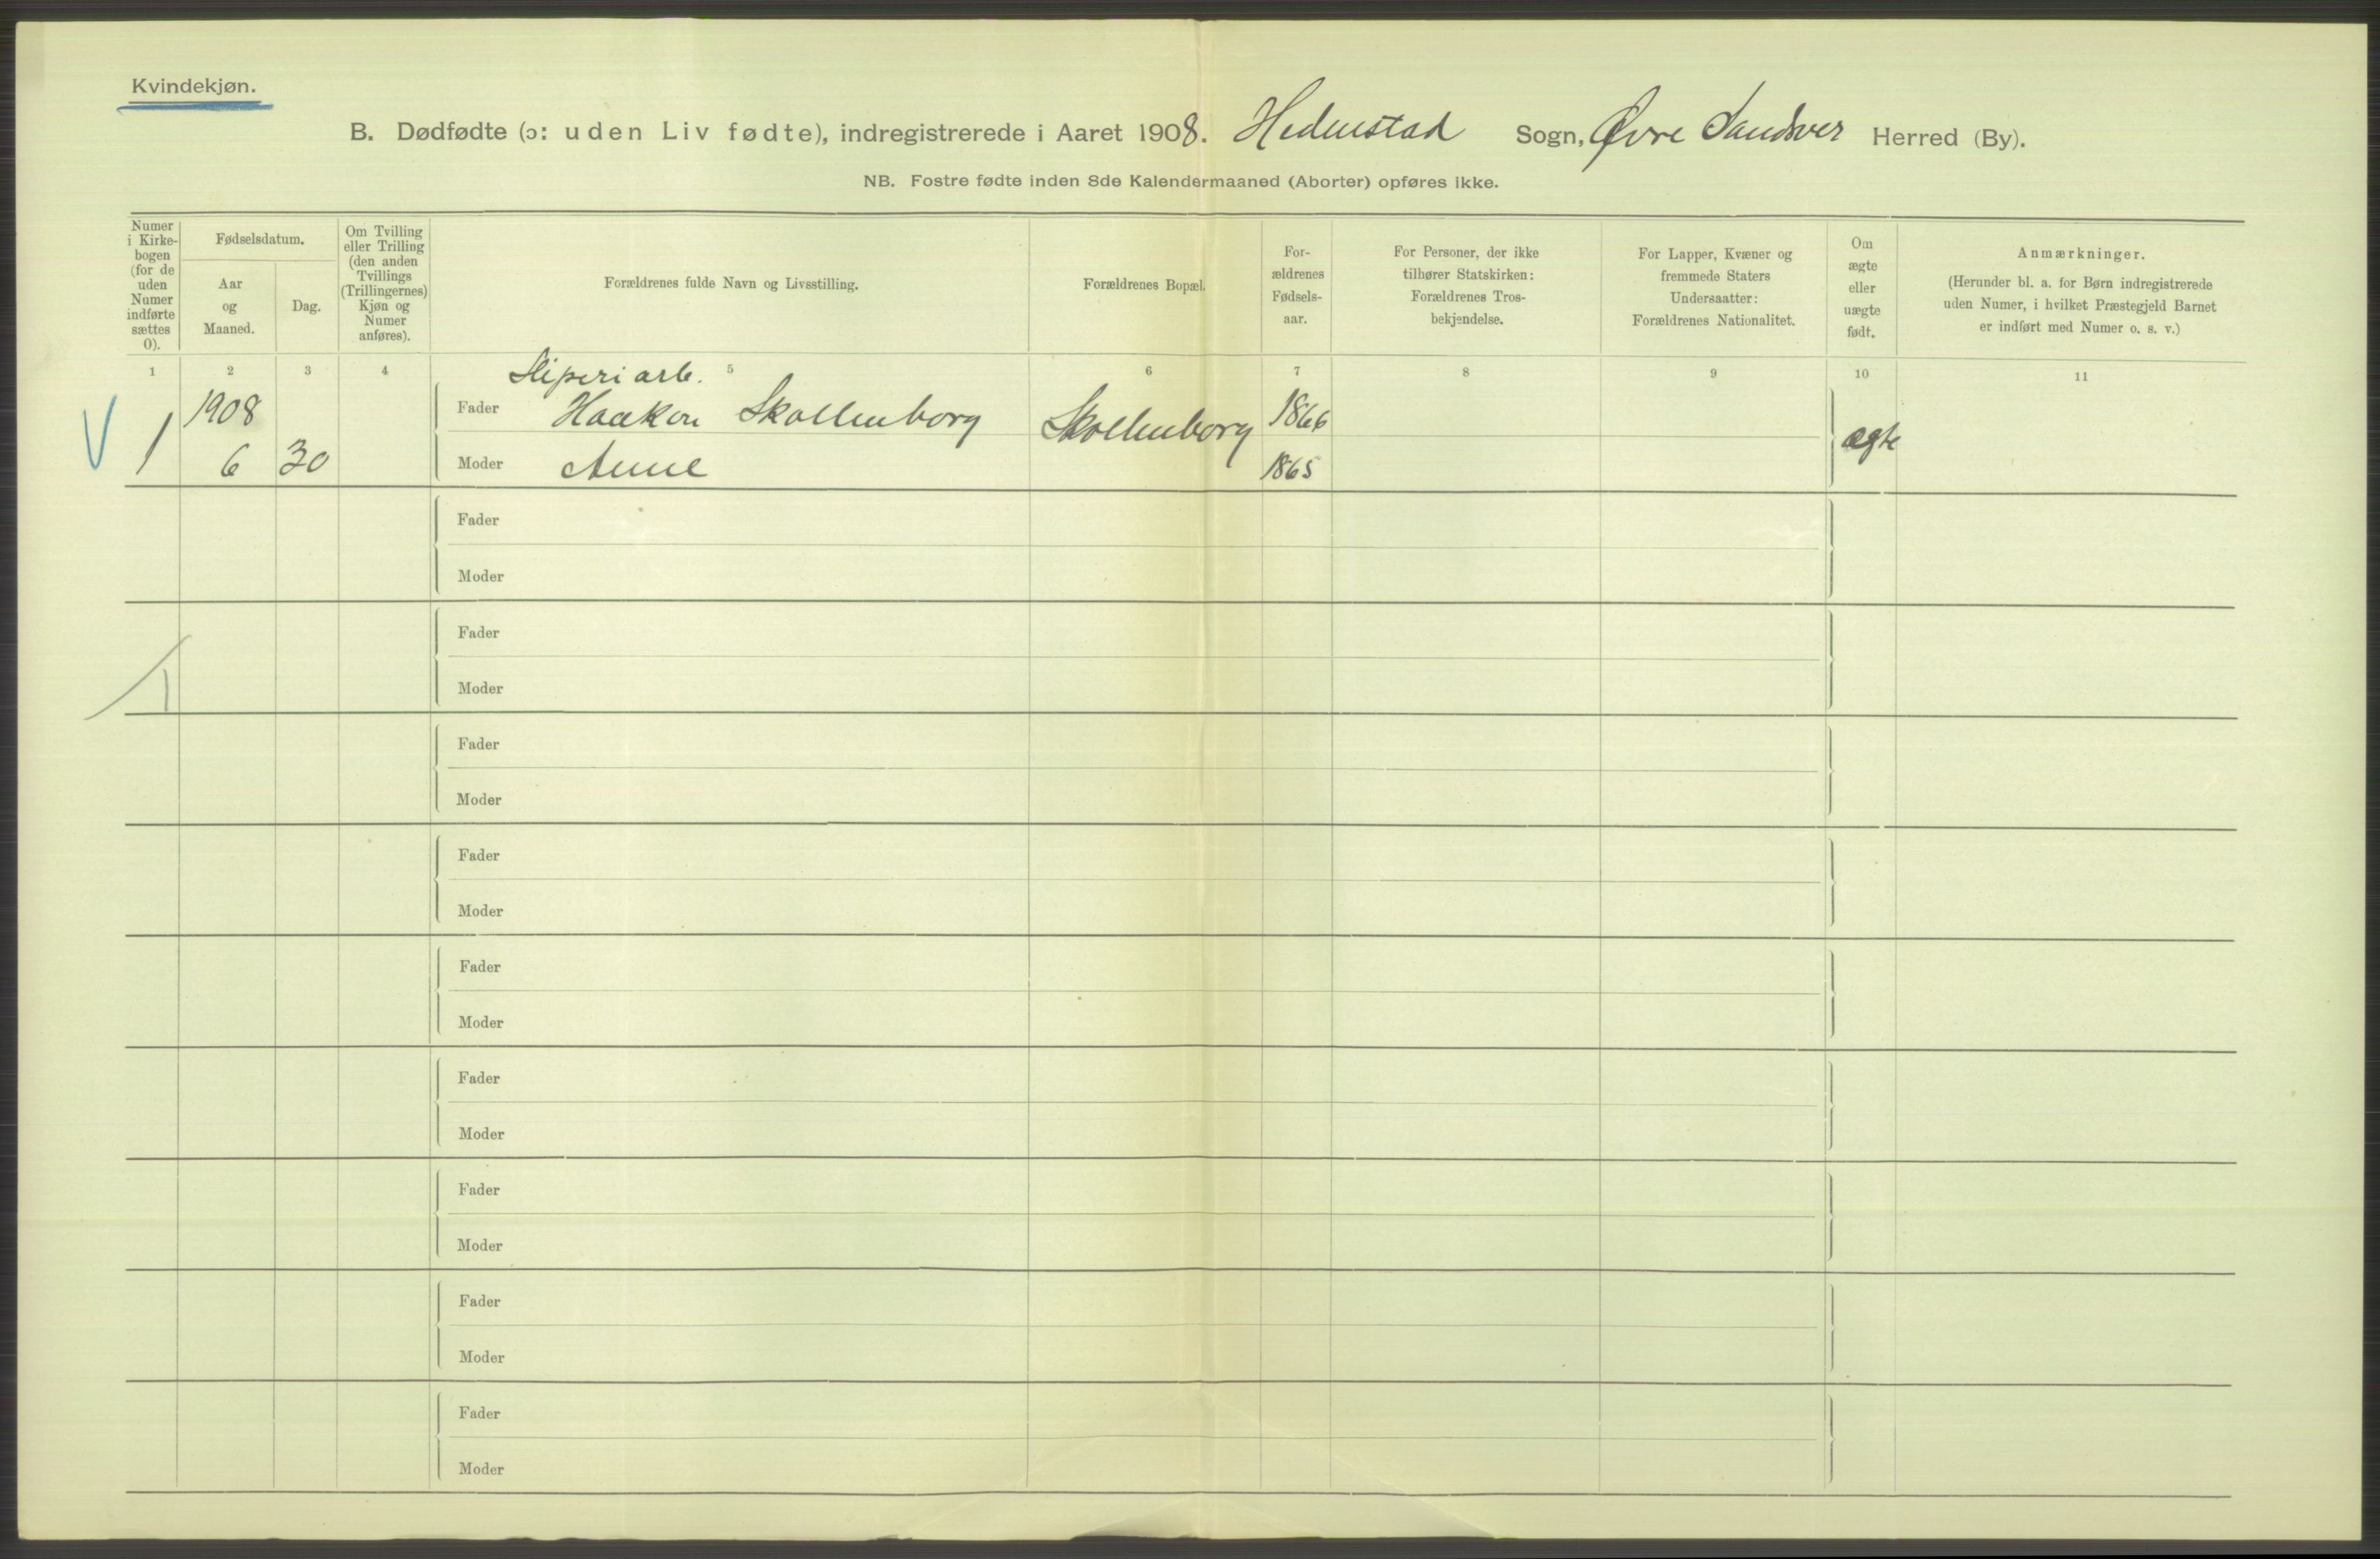 Kvindekjøn.
B. Dødfødte (ɔ: uden Liv fødte), indregistrerede i Aaret 1908. Hedenstad Sogn, Øvre Sandsver Herred (By).
NB. Fostre fødte inden 8de Kalendermaaned (Aborter) opføres ikke.
Numer
i Kirke-
bogen
(for de
uden
Numer
indførte
sættes
0).
Fødselsdatum.
Aar
og
Maaned.
Dag.
Om Tvilling
eller Trilling
(den anden
Tvillings
(Trillingernes)
Kjøn og
Numer
anføres).
Forældrenes fulde Navn og Livsstilling.
Forældrenes Bopæl.
For-
ældrenes
Fødsels-
aar.
For Personer, der ikke
tilhører Statskirken:
Forældrenes Tros-
bekjendelse.
For Lapper, Kvæner og
fremmede Staters
Undersaatter:
Forældrenes Nationalitet.
Om
ægte
eller
uægte
født.
Anmærkninger.
(Herunder bl. a. for Børn indregistrerede
uden Numer, i hvilket Præstegjeld Barnet
er indført med Numer o. s. v.)
1 2 3 4 5 6 7 8 9 10 11
Sliperiarb.
V 1 1908 Fader Haakon Skollenborg Skollenborg 1866 ægte
6 30 Moder Anne 1865
Fader
Moder
Fader
1 Moder
Fader
Moder
Fader
Moder
Fader
Moder
Fader
Moder
Fader
Moder
Fader
Moder
Fader
Moder